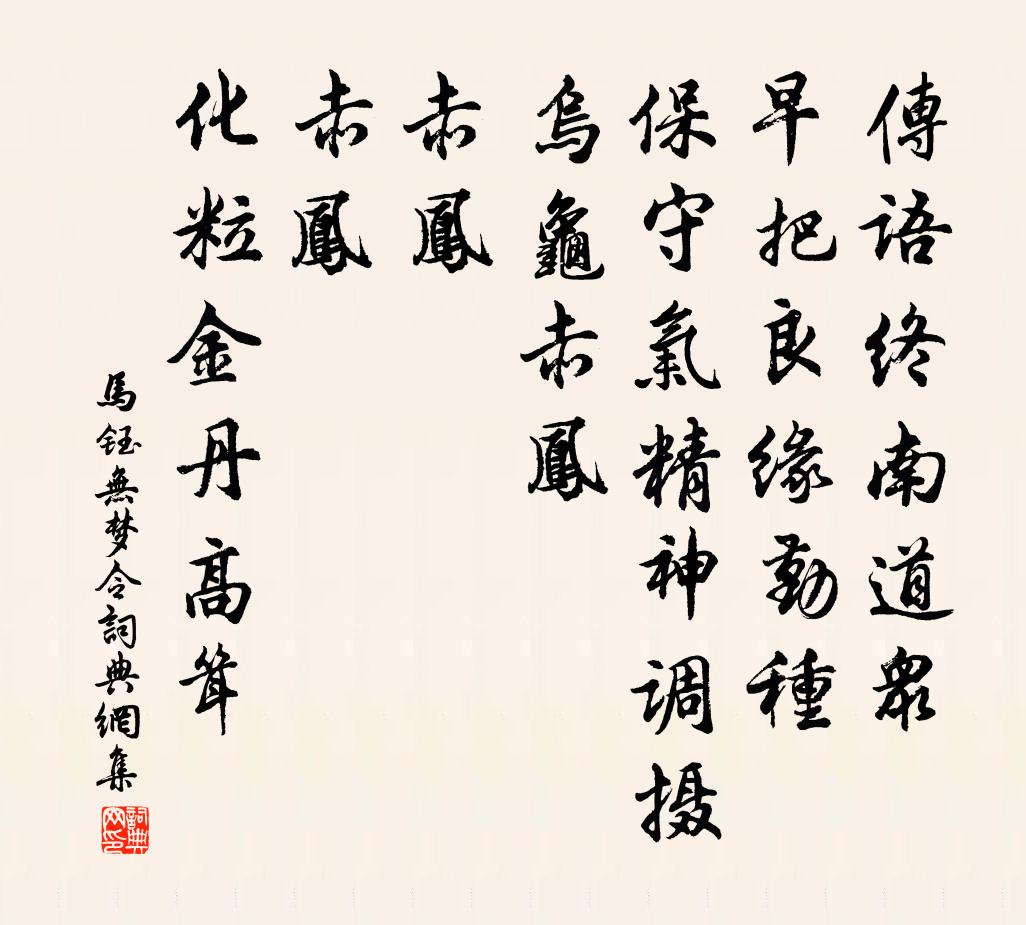 傳語終南道眾
早把良緣勤種
保守氣精神调摄
烏龜赤鳳
赤鳳
赤鳳
化粒金丹高耸
馬鈺無梦令詞典網集
詞典网印